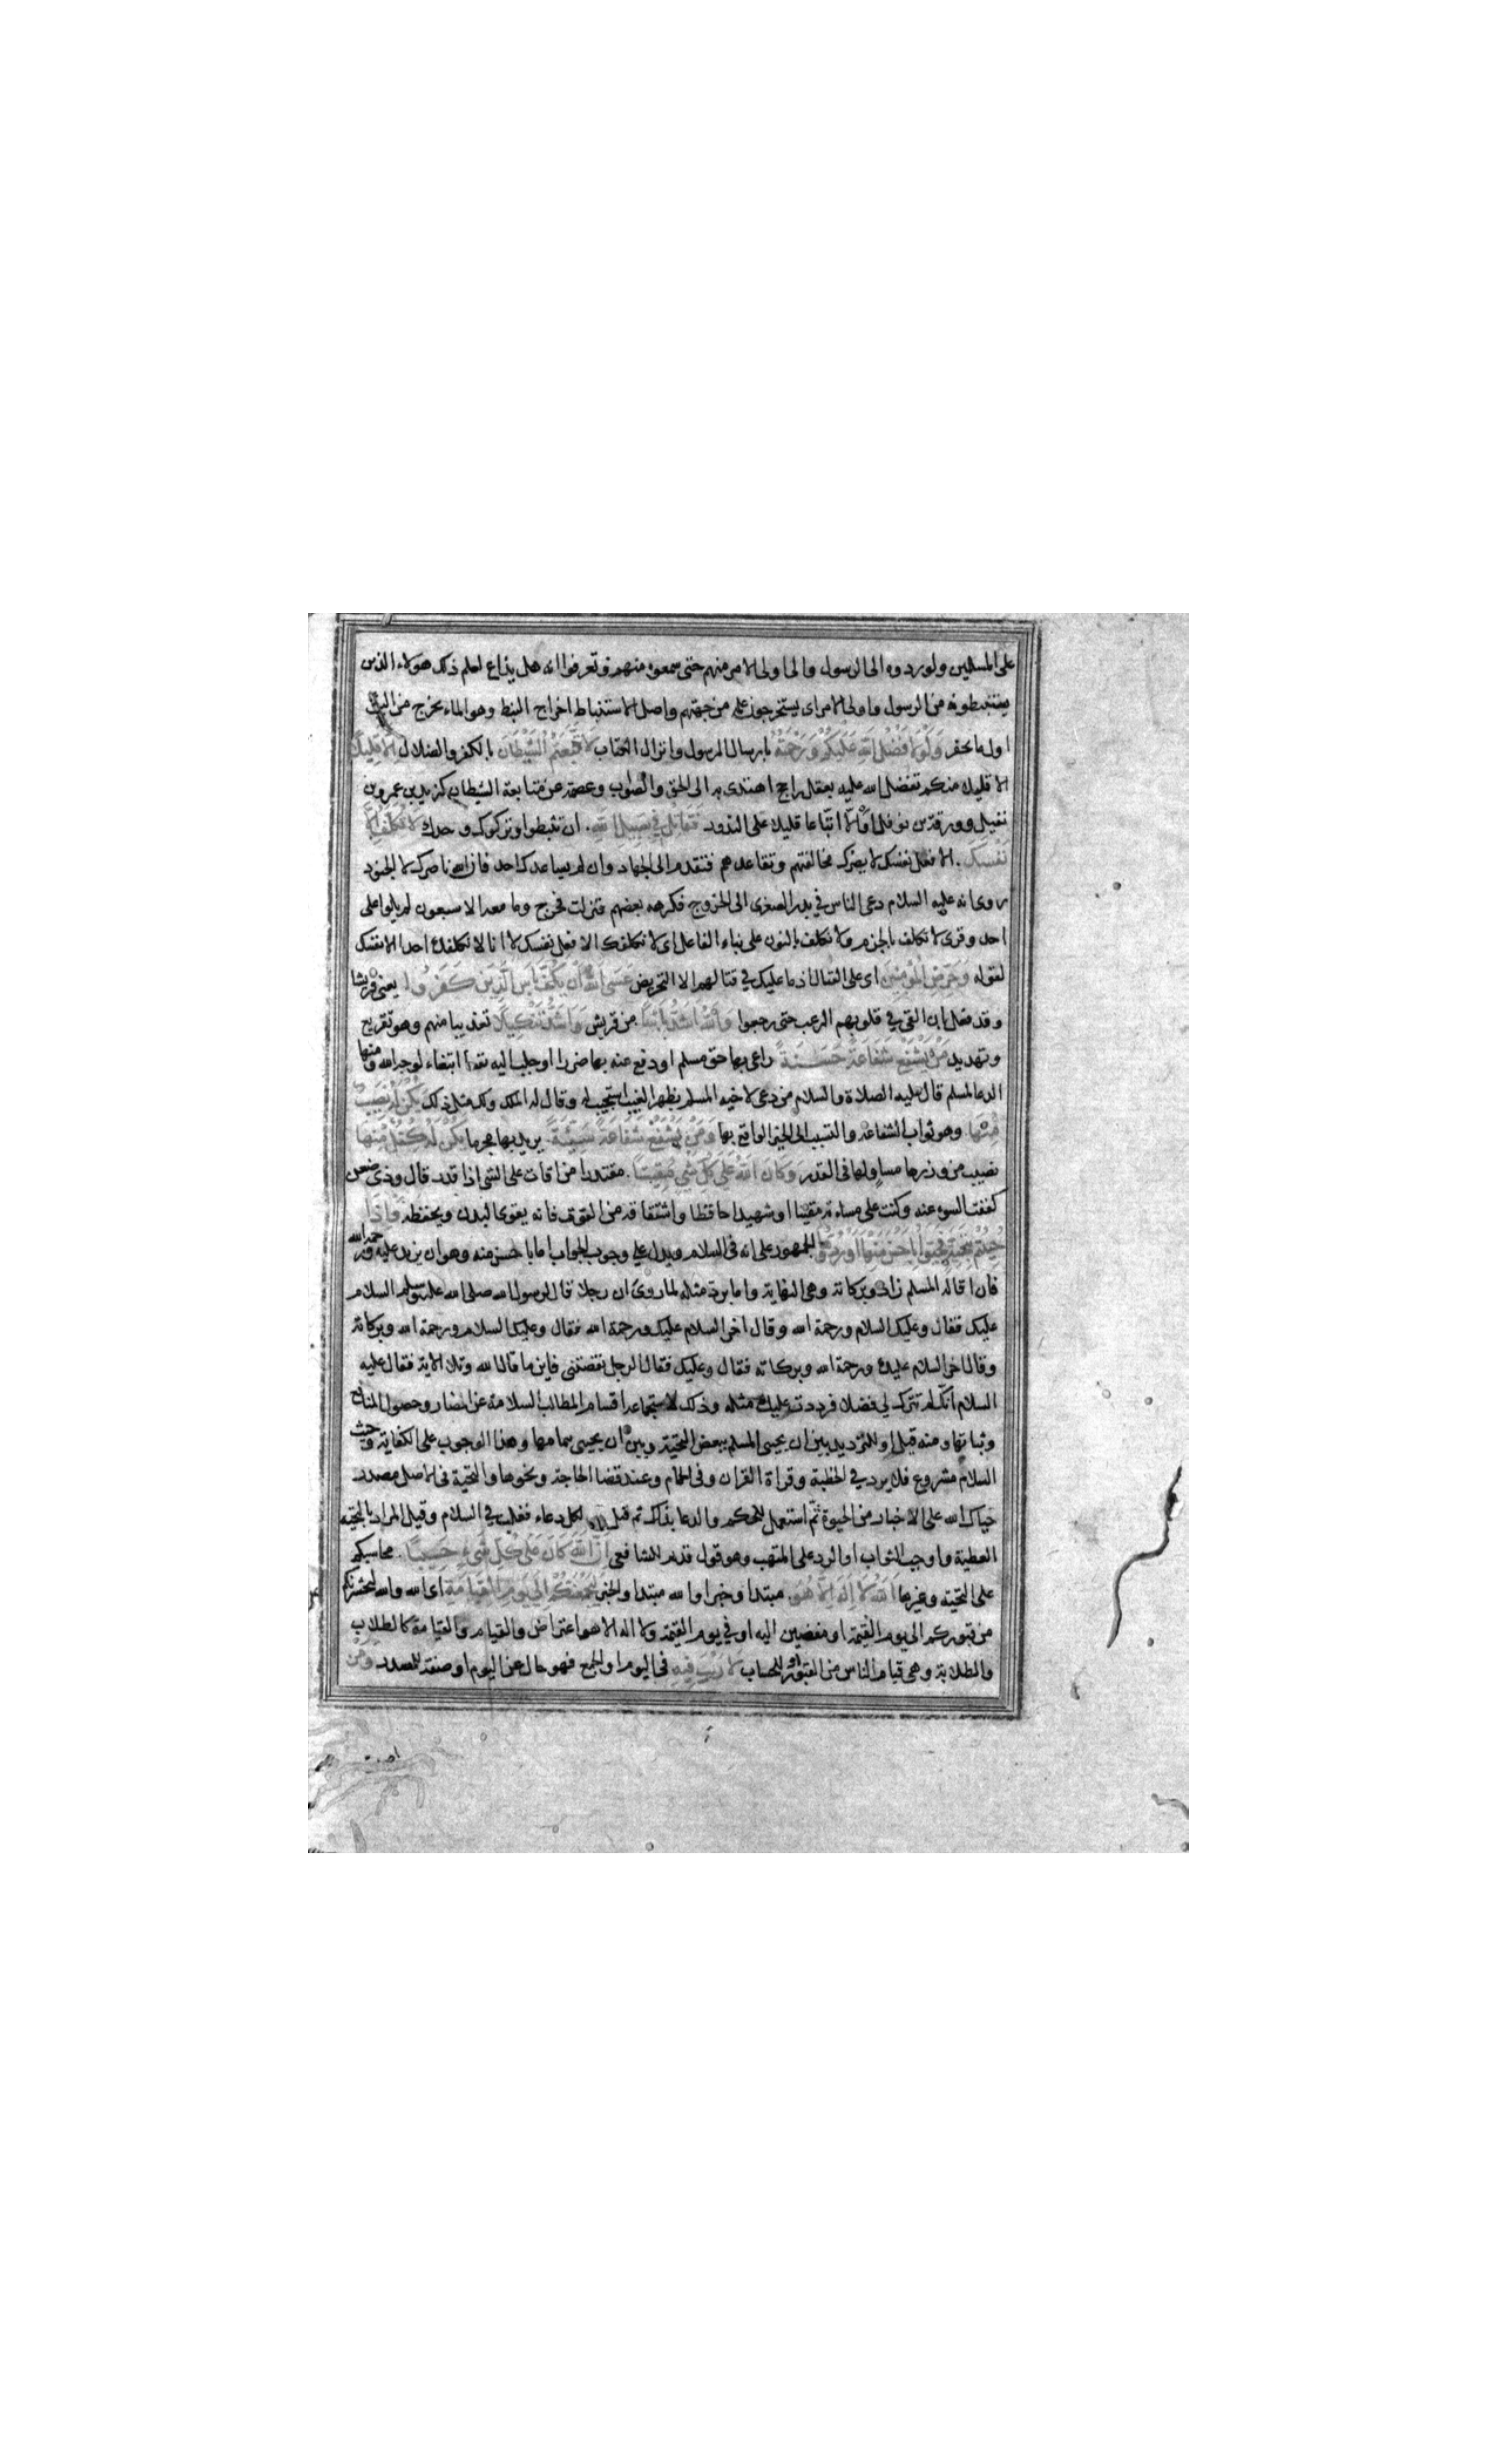 على المسلمين ولو ردوه الى الرسول والى اولى الامر منهم حتى سمعوه منهم وتعرفوا انه هل يذاع لعلم ذلك هؤلاء الذين
يستنبطونه من الرسول واولى الامر اى يستخرجون علمه من جهتهم واصل الاستنباط اخراج النبط وهو الماء يخرج من البئر
اول ما يحفر وَلَوْلَا فَضْلُ اللهِ عَلَيْكُمْ وَرَحْمَتُهُ بارسال الرسول وانزال الكتاب لَاتَّبَعْتُمُ الشَّيْطَانَ بالكفر والضلال اِلَّا قَلِيلًا
الا قليلا منكم تفضل الله عليه بعقل راجح اهتدى به الى الحق والصواب وعصمة عن متابعة الشيطان كزيد بن عمرو بن
نفيل وورقة بن نوفل او الا اتباعا قليلا على الندور فَقَاتِلْ فِي سَبِيلِ اللهِ ان تثبطوا وتركوك وحدك لَا تُكَلَّفُ اِلَّا
نَفْسَكَ الا فعل نفسك لا يضرك مخالفتهم وتقاعدهم فتقدم الى الجهاد وان لم يساعدك احد فان الله ناصرك لا الجنود
روى انه عليه السلام دعى الناس في بدر الصغرى الى الخروج فكرهه بعضهم فنزلت فخرج وما معه الا سبعون لم يلوا على
احد وقرئ لا تكلف بالجزم ولا نكلف بالنون على بناء الفاعل اى لا نكلفك الا فعل نفسك لا انا لا نكلفك احدا الا نفسك
لقوله وَحَرِّضِ الْمُؤْمِنِينَ اى على القتال اذ ما عليك في قتالهم الا التحريض عَسَى اللهُ اَنْ يَكُفَّ بَأْسَ الَّذِينَ كَفَرُوا يعنى قريشا
وقد فعل بان القى في قلوبهم الرعب حتى رجعوا وَاللهُ اَشَدُّ بَأْسًا من قريش وَاَشَدُّ تَنْكِيلًا تعذيبا منهم وهو تقريع
وتهديد مَنْ يَشْفَعْ شَفَاعَةً حَسَنَةً راعى بها حق مسلم او دفع عنه بها ضرا او جلب اليه نفعا ابتغاء لوجه الله ومنها
الدعا لمسلم قال عليه الصلاة والسلام من دعى لاخيه المسلم بظهر الغيب استجيب له وقال له الملك ولك مثل ذلك يَكُنْ لَهُ نَصِيبٌ
مِنْهَا وهو ثواب الشفاعة والتسبب الى الخير الواقع بها وَمَنْ يَشْفَعْ شَفَاعَةً سَيِّئَةً يريد بها محرما يَكُنْ لَهُ كِفْلٌ مِنْهَا
نصيب من وزرها مساو لها فى القدر وَكَانَ اللهُ عَلَى كُلِّ شَيْءٍ مُقِيتًا مقتدرا من اقات على الشئ اذا قدر قال وذى ضغن
كففت السوء عنه وكنت على مساءته مقيتا او شهيدا حافظا واشتقاقه من القوت فانه يقوى البدن ويحفظه وَاِذَا
حُيِّيتُمْ بِتَحِيَّةٍ فَحَيُّوا بِاَحْسَنَ مِنْهَا اَوْ رُدُّوهَا الجمهور على انه فى السلام ويدل على وجوب الجواب اما باحسن منه وهو ان يزيد عليه ورحمة الله
فان قاله المسلم زاد وبركاته وهى النهاية واما برد مثله لما روى ان رجلا قال لرسول الله صلى الله عليه وسلم السلام
عليك فقال وعليك السلام ورحمة الله وقال اخر السلام عليك ورحمة الله فقال وعليك السلام ورحمة الله وبركاته
وقال اخر السلام عليك ورحمة الله وبركاته فقال وعليك فقال الرجل نقصتنى فاين ما قال الله وتلا الاية فقال عليه
السلام انك لم تترك لي فضلا فرددت عليك مثله وذلك لاستجماعه اقسام المطالب السلامة عن المضار وحصول المنافع
وثباتها ومنه قيل او للترديد بين ان يحيى المسلم ببعض التحية وبين ان يحيى بتمامها وهذا الوجوب على الكفاية وحيث
السلام مشروع فلا يرد في الخطبة وقراة القران وفى الحمام وعند قضا الحاجة ونحوها والتحية فى الاصل مصدر
حياك الله على الاخبار من الحيوة ثم استعمل للحكم والدعا بذلك ثم قيل لكل دعاء فغلب في السلام وقيل المراد بالتحية
العطية واوجب الثواب او الرد على المتهب وهو قول قديم للشافعى اِنَّ اللهَ كَانَ عَلَى كُلِّ شَيْءٍ حَسِيبًا محاسبكم
على التحية وغيرها اَللهُ لَا اِلَهَ اِلَّا هُوَ مبتدا وخبر او الله مبتدا والخبر لَيَجْمَعَنَّكُمْ اِلَى يَوْمِ الْقِيَامَةِ اى الله والله ليحشرنكم
من قبوركم الى يوم القيمة او مفضين اليه او في يوم القيمة ولا اله الا هو اعتراض والقيام والقيامة كالطلاب
والطلابة وهى قيام الناس من القبور او للحساب لَا رَيْبَ فِيهِ فى اليوم او الجمع فهو حال عن اليوم او صفة للمصدر وَمَنْ